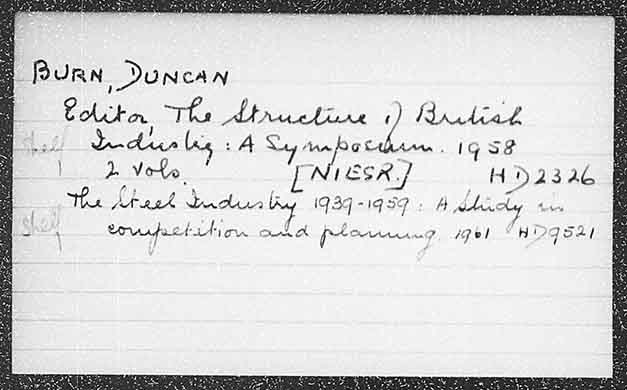 BURN, DUNCAN
Editor, The Structure of British
shelf Industry: A Symposium. 1958
2 vols. [NIESR.] HD2326
The Steel Industry 1939-1959: A Study in
shelf competition and planning. 1961 HD9521